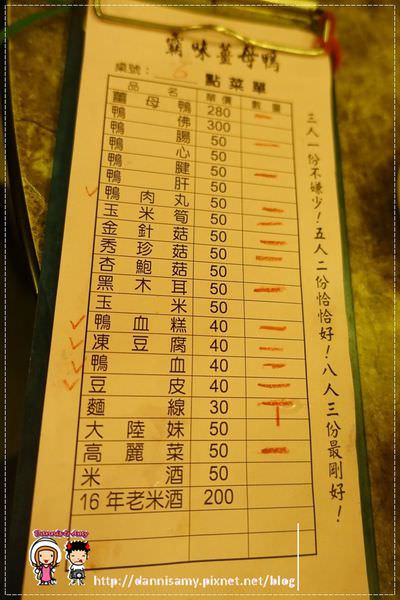 霸味薑母鴨
桌號: 6 點菜單
品名 單價 數量
薑母鴨 280 一
鴨佛 300
鴨腸 50 一
鴨心 50
鴨腱 50 一
鴨肝 50
鴨肉丸 50 一
玉米筍 50 一
金針菇 50 一
秀珍菇 50 一
杏鮑菇 50 一
黑木耳 50 一
玉米 50
鴨血糕 40 一
凍豆腐 40 一
鴨血 40 一
豆皮 40 一
麵線 30 T
大陸妹 50
高麗菜 50 一
米酒 50
16年老米酒 200
三人一份不嫌少!五人二份恰恰好!八人三份最剛好!
Dannis & Amy
http://dannisamy.pixnet.net/blog